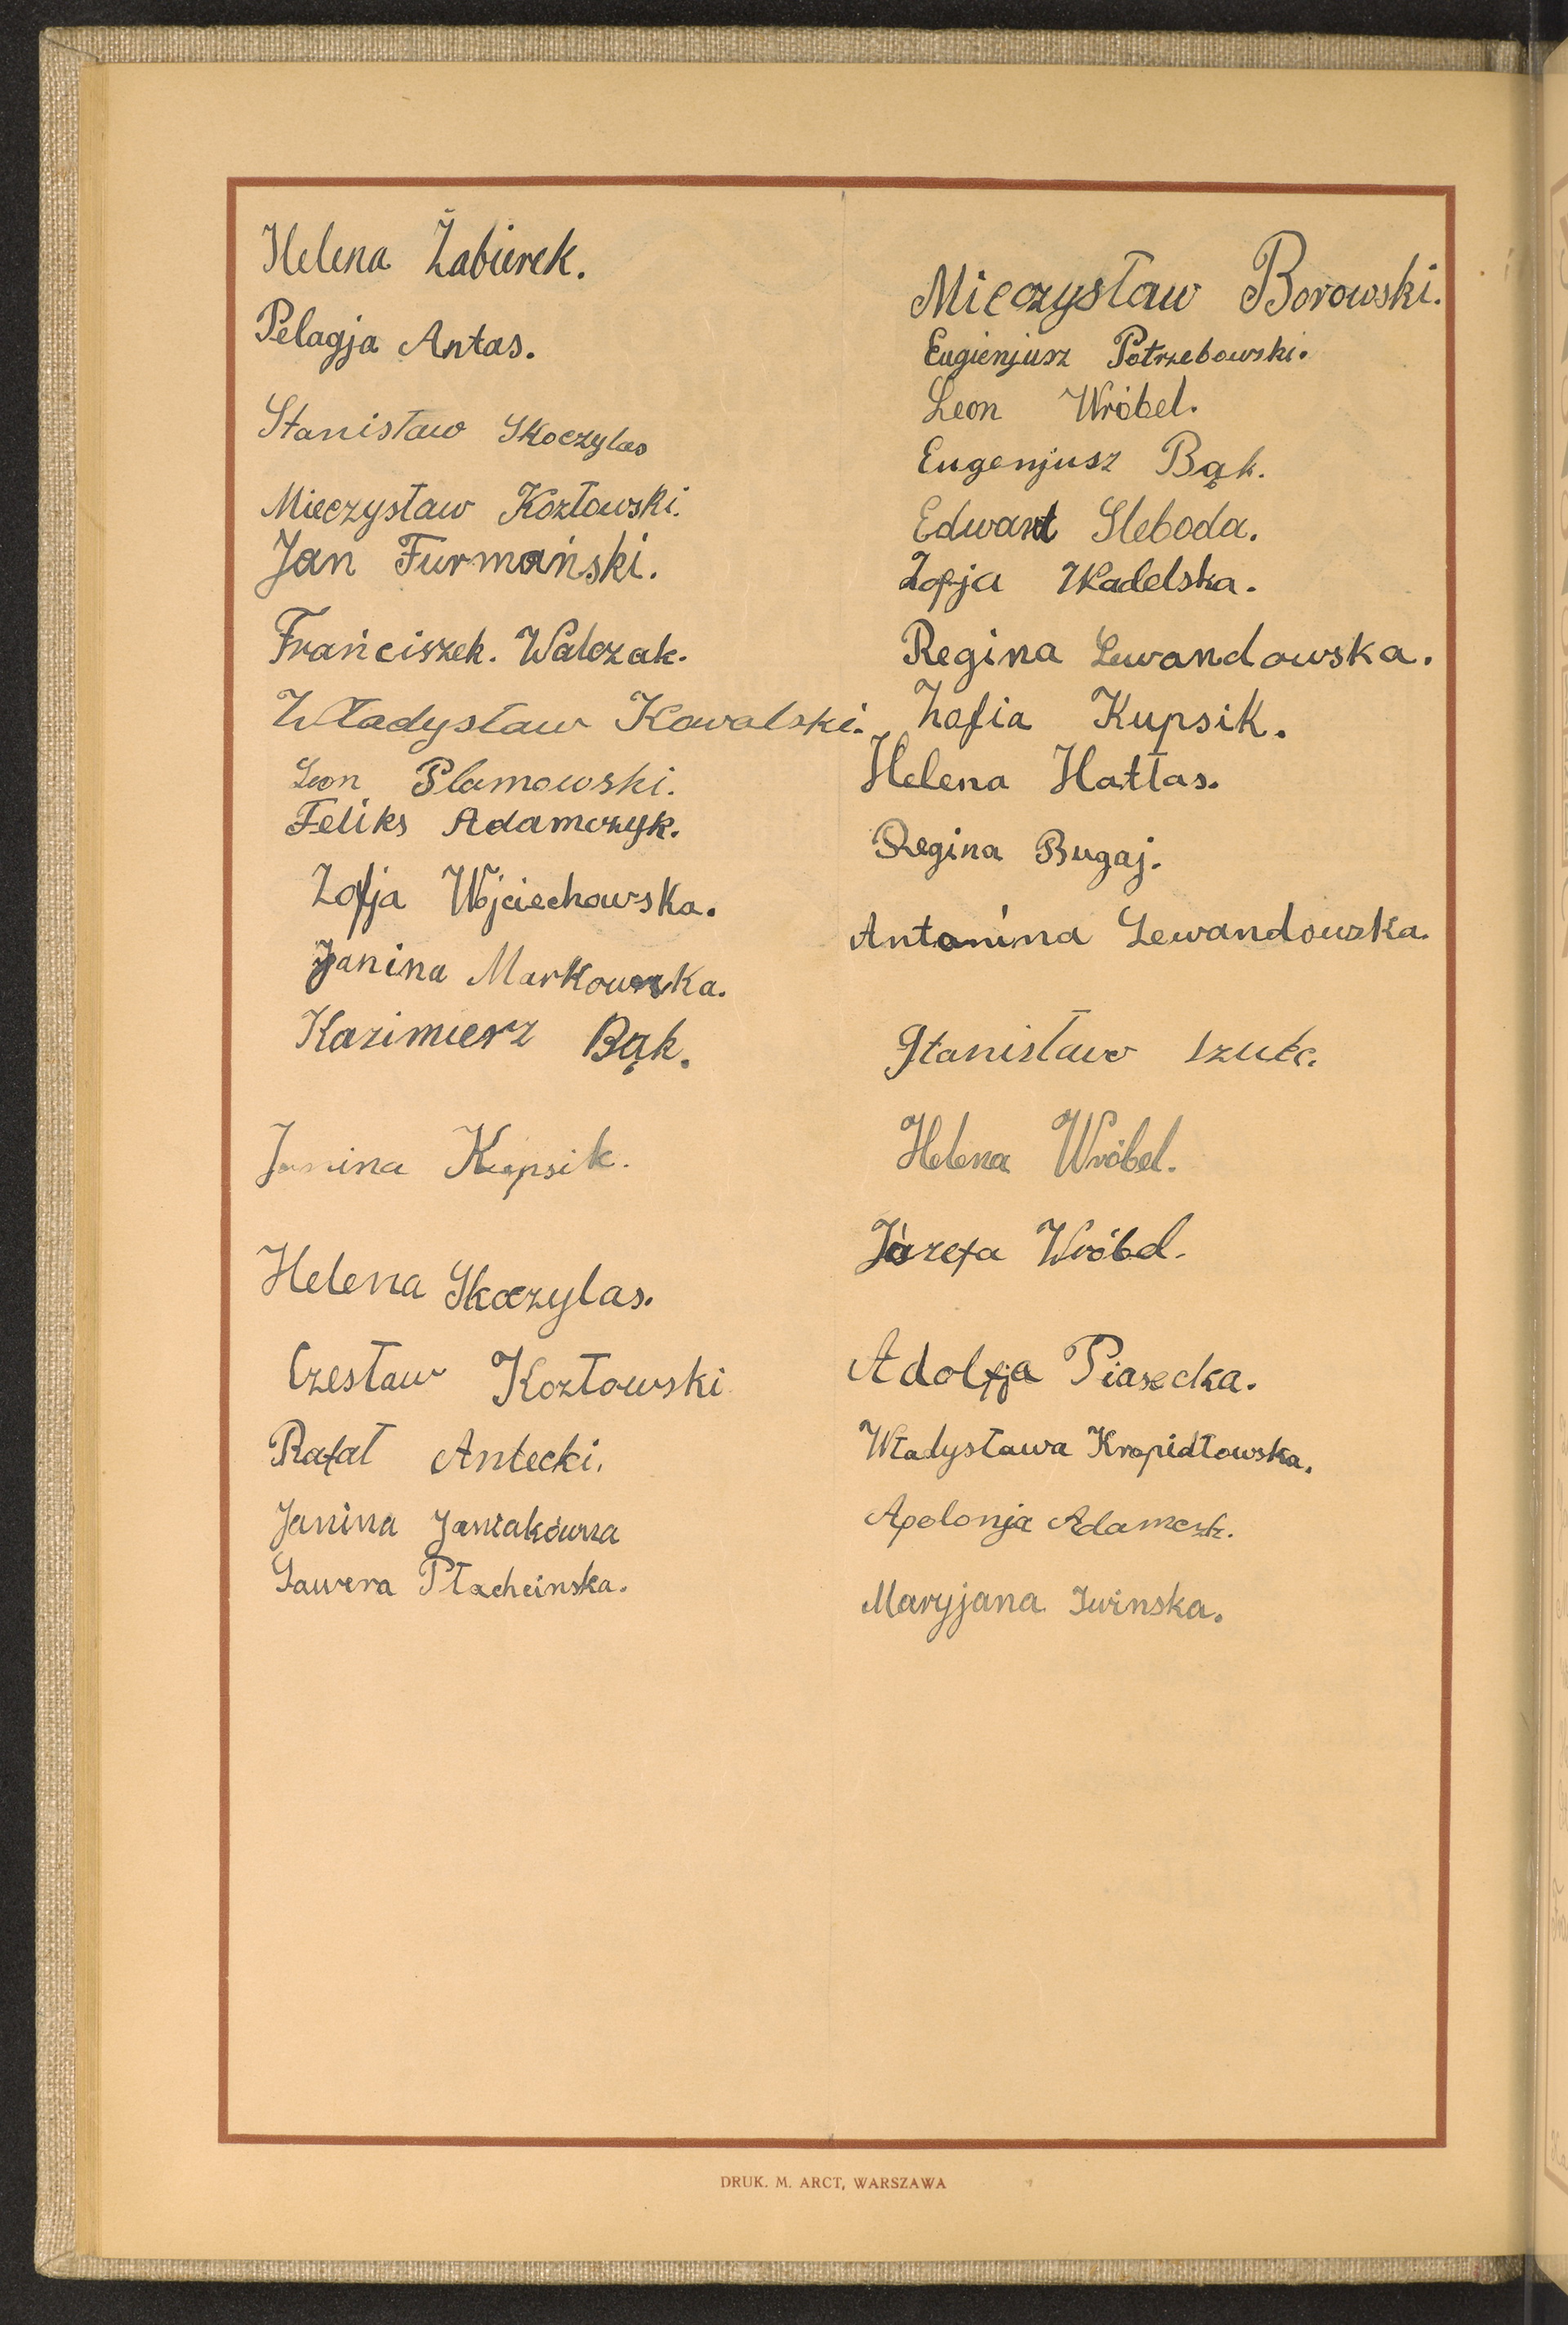 Helena Żabierek.
Pelagja Antas.
Stanisław Skoczylas
Mieczysław Kozłowski.
Jan Furmański.
Frańciszek. Walczak.
Władysław Kowalski.
Leon Plamowski.
Feliks Adamczyk.
Zofja Wojciechowska.
Janina Markowska.
Kazimierz Bąk.
Janina Kupsik.
Helena Skoczylas.
Czesław Kozłowski
Rafał Antecki.
Janina Janiakówna
Sawera Płacheinska.
Mieczysław Borowski.
Eugienjusz Potrzebowski.
Leon Wróbel.
Eugenjusz Bąk.
Edwart Sleboda.
Zofja Wadelska.
Regina Lewandowska.
Zofia Kupsik.
Helena Hałas.
Regina Bugaj.
Antonina Lewandowska.
Stanisław Szulc.
Helena Wróbel.
Józefa Wróbel.
Adolfja Piasecka.
Władysława Kropidłowska.
Apolonja Adamczk.
Maryjana Iwinska.
DRUK. M. ARCT, WARSZAWA